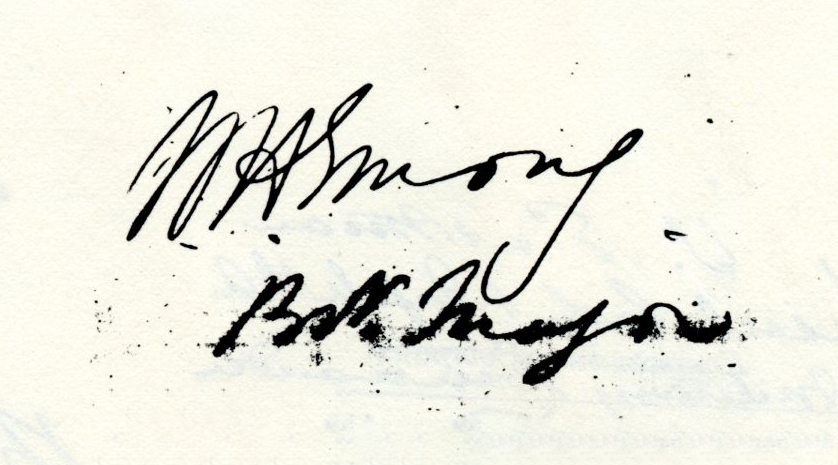 W. H. Emory
Bvt Major